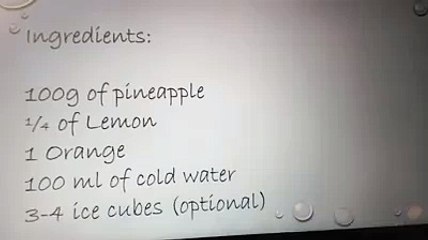 Ingredients:
100g of pineapple
¼ of Lemon
1 Orange
100 ml of cold water
3-4 ice cubes (optional)